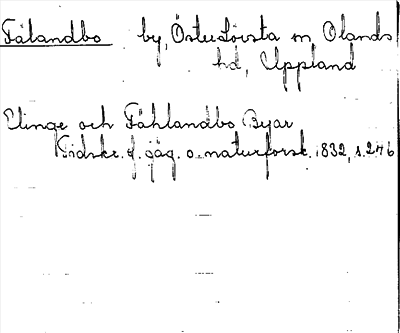 Fålandbo by, Österlövsta sn Olands
hd, Uppland
Elinge och Fåhlandbo Byar
Tidskr. f. jäg. o. naturforsk. 1832, s. 246